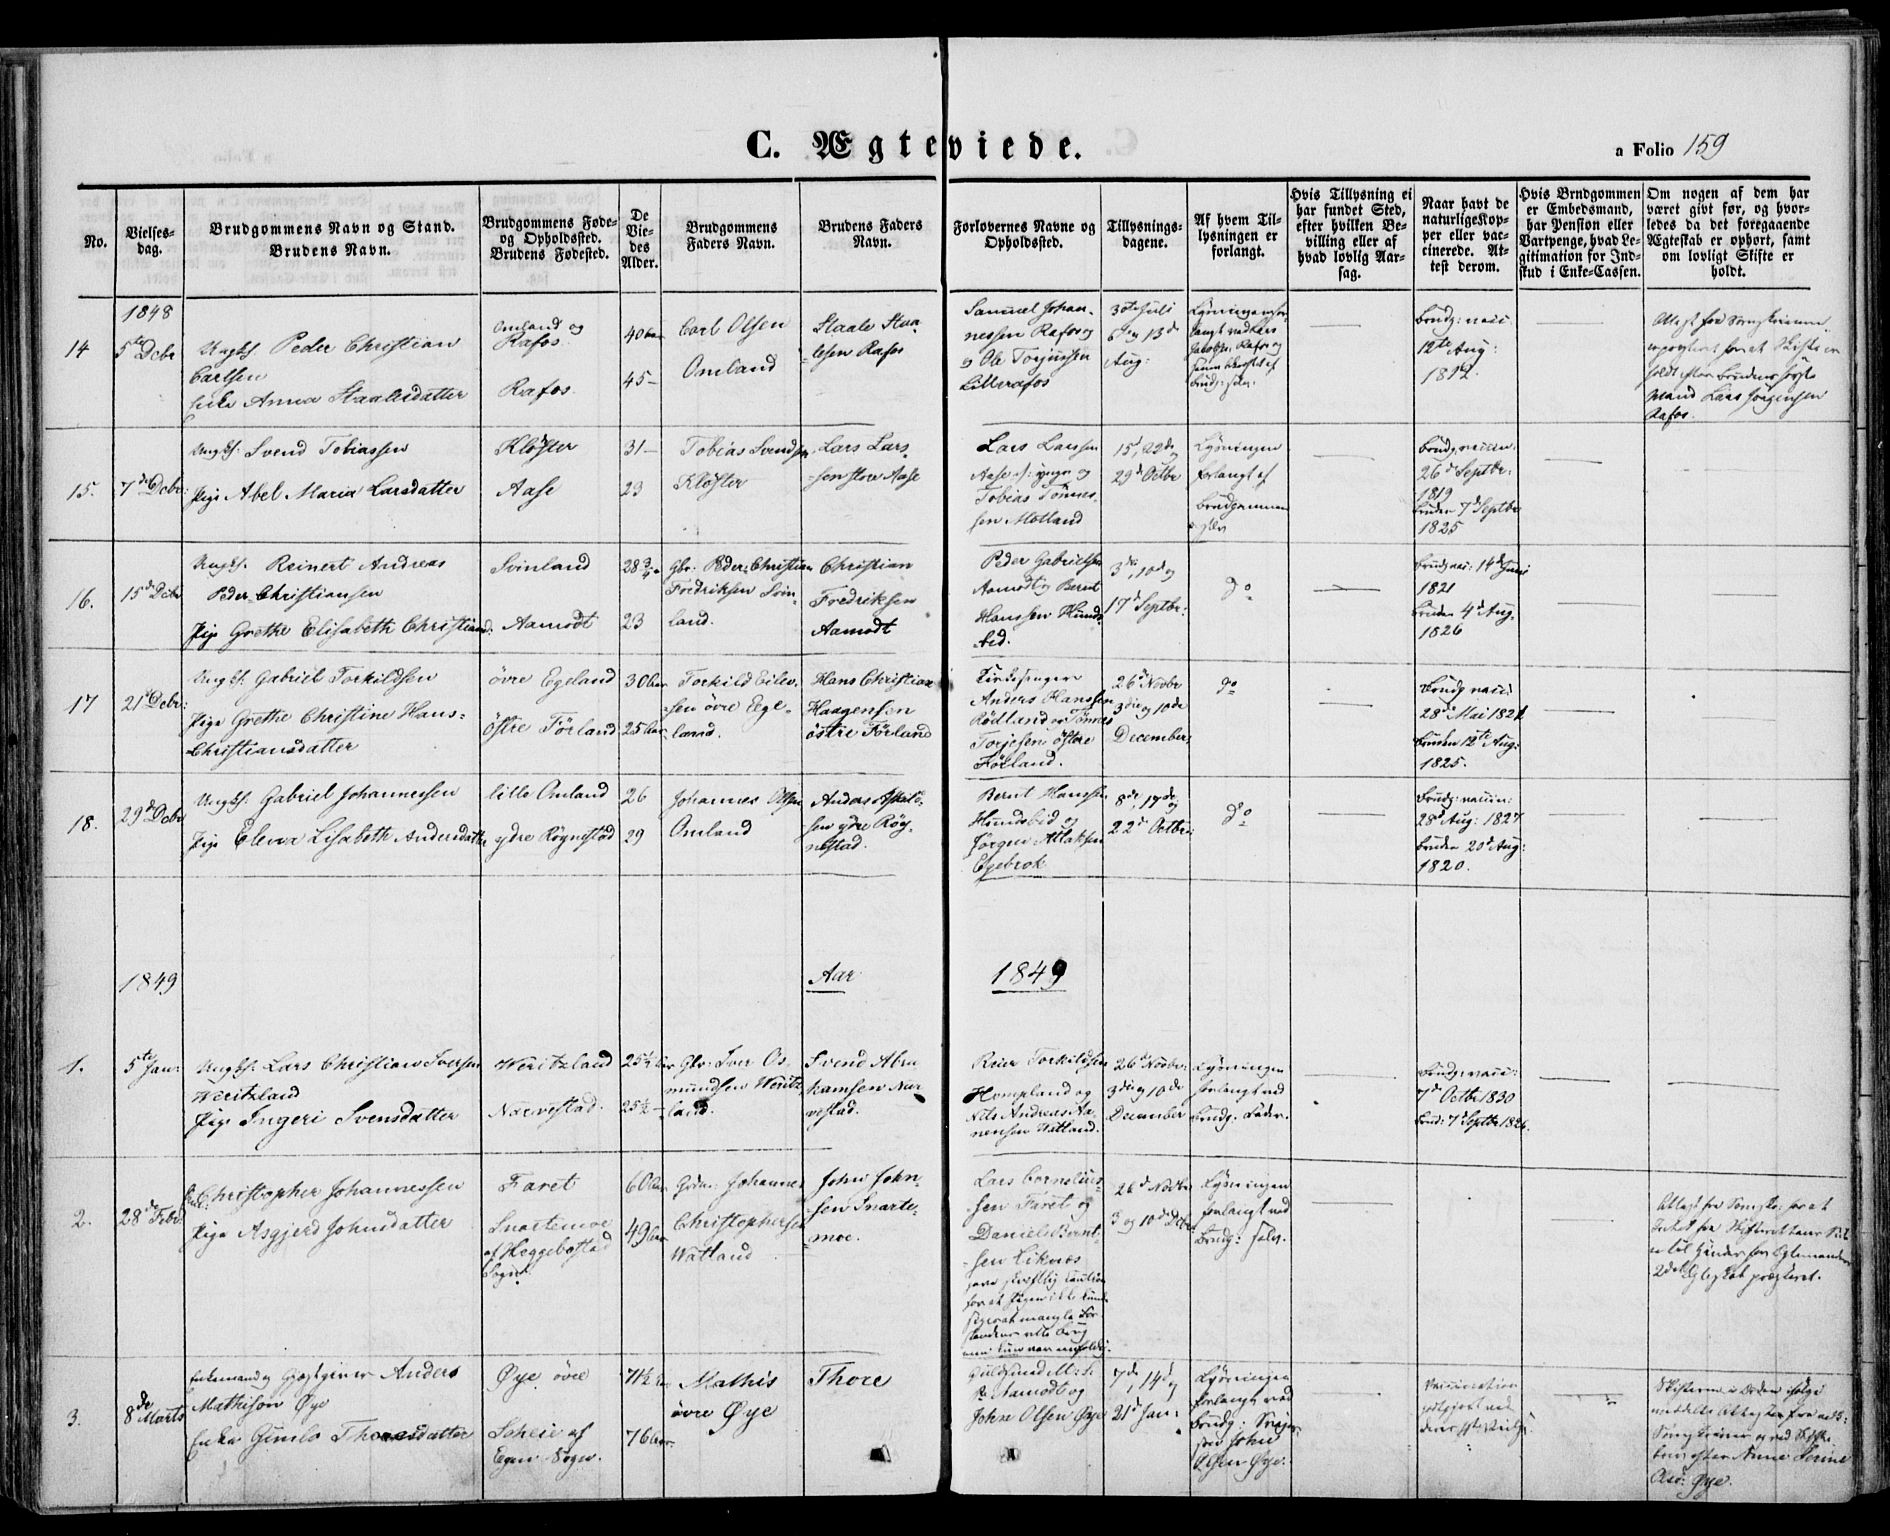 C. Ægteviede.
a Folio 159
No.
Vielses-
dag.
Brudgommens Navn og Stand.
Brudens Navn.
Brudgommens Føde-
og Opholdssted.
Brudens Fødested.
De
Vie-
des
Alder.
Brudgommens
Faders Navn.
Brudens Faders
Navn.
Forlovernes Navne og
Opholdssted.
Tillysnings-
dagene.
Af hvem Til-
lysningen er
forlangt.
Hvis Tillysning ei
har fundet Sted,
efter hvilken Be-
villing eller af
hvad lovlig Aar-
sag.
Naar havt de
naturlige Kop-
per eller vac-
cinerede. At-
test derom.
Hvis Brudgommen
er Embedsmand,
har Pension eller
Vartpenge, hvad Le-
gitimation for Ind-
skud i Enke-Cassen.
Om nogen af dem har
været givt før, og hvor-
ledes da det foregaaende
Ægteskab er ophørt, samt
om lovligt Skifte er
holdt.
1848
14
5te Dcbr
Ungk. Peder Christian
Carlsen
Enke Anna Staalesdatter
Omland og
Rafos
Rafos
40 Aar
45 —
Carl Olsen
Omland
Staale Staa-
lesen Rafos
Samuel Johan-
nessen Rafos og
Ole Torjussen
Lillerafos
30te Juli
6te og 13de
Aug:
Brudg: vacc:
12te Aug:
1812.
holdt efter Brudens forrige
Mand Lars Jørgensen
Rafos.
15.
7de Dcbr:
Ungk: Svend Tobiassen
Pige Abel Maria Larsdatter
Kloster
Aase
31 —
23
Tobias Svendsen
Kloster
Lars Lars-
sen store Aase
Lars Larssen
Aase d: yngre og
Tobias Tønnes-
sen Motland
15de, 22de og
29de Octbr
Lysningen
forlangt af
Brudgommen
selv
Brudg. vaccin:
26de Septbr:
1819
Bruden 7de Septbr
1825
16.
15de Dcbr
Ungk. Reinert Andreas
Peder-Christiansen
Pige Grethe Elisabeth Christiansd.
Svinland
Aamodt
28 3/4
23
Gbr. Peder-Christian
Fredriksen Svin-
land.
Christian
Fredriksen
Aamodt
Peder Gabrielsen
Aamodt og Bernt
Hanssen Hunds-
bed.
3die, 10de og
17de Septbr:
do
Brudg vac: 14de Juni
1821
Bruden 4de Aug.
1826
17
21de Dcbr:
Ungk. Gabriel Torkildsen
Pige Grethe Christine Hans-
Christiansdatter
øvre Egeland
østre Førland
30 Aar
25 Aar
Torkild Eilev-
sen øvre Ege-
land.
Hans Christian
Haagensen
østre Førland
Kirkesanger
Anders Hanssen
Rødland og Tønnes
Torjesen østre
Førland.
26de Novbr
3die og 10de
December:
do
Brudg vacc:
28de Mai 1821
Bruden 12te Aug:
1825.
18.
29de Dcbr
Ungk. Gabriel Johannessen
Pige Elena Lisabeth Andersdatter
lille Omland
ydre Røynestad
26
29
Johannes Olsen
Omland
Anders
sen ydre Røy-
nestad.
Bernt Hanssen
Hundsbed og
Jørgen Atlaksen
Egebrok
8de, 17de og
22de Octbr:
do
Brudg: vaccin:
28de Aug: 1827
Bruden 20de Aug:
1820.
1849
Aar
1849
1.
5te Jan:
Ungk. Lars Christian Iversen
Weritzland
Pige Ingeri Svensdatter
Weritzland
Narvestad.
25 1/4 Aar
25 1/2 —
Gbr: Iver Os-
mundsen Weritz-
land.
Svend Abra-
hamsen Nar-
vestad.
Reier Torkildsen
Hompland og
Nils Andreas Aa-
nensen Watland.
26de Novbr:
3die og 10de
December
Lysningen
forlangt ved
Brudg: Fader.
Brudg: vacc:
7de Octbr 1830
Brud: 7de Septbr 1826.
2.
28de Febr.
Christopher Johannessen
Pige Asgjerd Johnsdatter
Faret
Snartemoe
af Heggebostad
Sogn.
60 Aar
49 Aar
Johannes
Christophersen
Watland
John John-
sen Snarte-
moe.
Lars Cornelius-
sen Faret og
Daniel Bernt-
sen Liknes
26de Novbr
3 og 10de Dcbr
Lysningen
forlangt ved
Brudg: selv.
3.
8de Marts
Enkemand og Gjæstgiver Anders
Mathison Øye
Enke Gunlo Thoresdatter
Øye øvre
Scheie af
Egen Sogn.
71 1/2 Aar
76 Aar
Mathis
øvre Øye
Thore
Guldsmed
Aamodt og
John Olsen Øye
7de, 14de og
21de Jan:
Lysningen
forlangt ved
Brudg:
John
Olsen Øye.